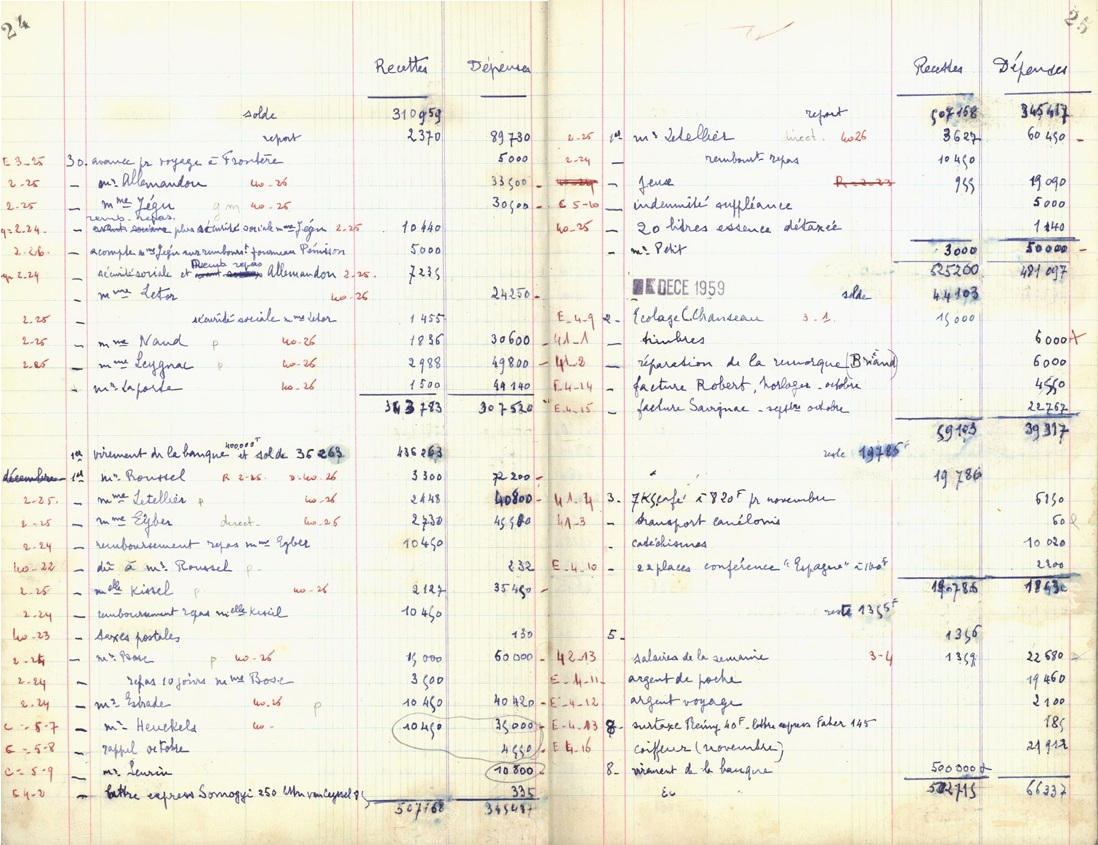 24
Recettes Dépenses
solde 310959
report 2370 89730
E 3-25 30. avance pr voyage à Frontère 5000
2-25 — mr. Allemandou 40-26 33500 -
2-25 — mme Jégu g m 40-26 30500 -
remb. repas
2.24 — plus sécurité sociale mme Jégu 2-25 10440
2-26. — acompte mme Jégu sur rembours' fourneau Pénision 5000
Remb repas
2-24 — sécurité sociale et Allemandou 2-25. 7235
— mme Letor 40-26 24250 -
2.25 sécurité sociale mme Letor 1455
2-25 — mme Naud p 40-26 1836 30600 -
2-25 — mme Leygnac p 40-26 2988 49800 -
— mr Laporte 40-26 1500 44140
343783 307520
1er virement de la banque 400,000f et solde 36263 436263
décembre 1er mr. Roussel R 2-25. D-40-26 3300 72200 -
2-25. — mme Letellier p 40-26 2448 40800 -
2-25 — mme Eyber direct. 40-26 2730 45500 -
2-24 — remboursement repas mme Eyber 10450
40-22 — dû à mr. Roussel p- 232
2-25 — melle Kissel p 40-26 2127 35450 -
2-24 — remboursement repas melle Kissel 10450
40-23 — taxes postales 130
2-24 — mr. Bosc p 40-26 15000 60000 -
2-24 — repas 10 joirs mme Bosc 3500
2-24 — mr Estrade 40-26 p 10450 40420 -
C-5-7 — mr Heuckels 40- 10450 35000 -
C-5-8 — rappel octobre 4550
C-5-9 — mr. Leurin 10800 -
E4-2 — lettre express Somogyi 250 335
507168 345487
25
Recettes Dépenses
report 507168 345487
2-25 1er mr Letellier direct. 4026 3627 60450 -
2-24 — rembourst repas 10450
— Jeux R-2-23 955 19090
C 5-10 — indemnité suppléance 5000
40-25 — 20 litres essence détaxée 1140
— mr. Petit 3000 50000 -
525200 481097
DECE 1959 solde 44103
E-4-9 2- Ecolage C. Chanseau 3-1. 15000
41-1 — timbres 6000
41-2 — réparation de la remorque (Briand) 6000
E-4-14 — facture Robert, horloger - octobre 4550
E-4-15 — facture Savignac - septre octobre 22767
59103 39317
reste 19786f
19786
41-4 3- 7Kgs café à 820f pr novembre
41-3 — transport canélonis 60
- catéchismes 10020
E-4-10 - 22 places conférence "Espagne" à 100f 2200
190786
reste 1356f
5- 1356
42-13 salaires de la semaine 3-4 1359 22680
E-4-11- argent de poche 19460
E-4-12 argent voyage 2100
E-4-13 8- surtaxe Reimy 40f - lettre express Faber 145 185
E 4-16 coiffeur (novembre) 21912
8- virement de la banque 500000
502715 66337